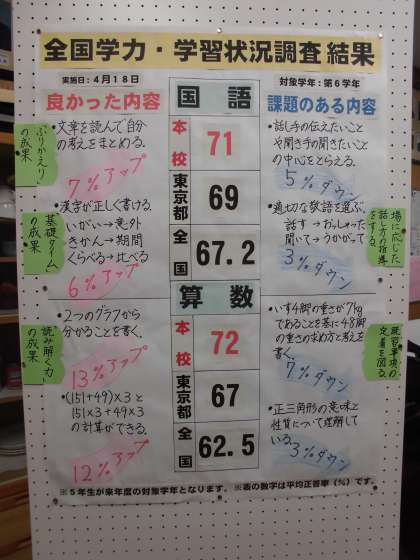 全国学力・学習状況調査 結果
実施日：4月18日
対象学年：第6学年
良かった内容
国語
課題のある内容
・文章を読んで自分
の考えをまとめる。
7%アップ
「ふりかえり」
の成果
・漢字が正しく書ける。
いがい→意外
きかん→期間
くらべる→比べる
6%アップ
基礎タイム
の成果
本校
71
東京都
69
全国
67.2
・話し手の伝えたいこと
や聞き手の聞きたいこと
の中心をとらえる。
5%ダウン
・適切な敬語を選ぶ。
話す→おっしゃった
聞いて→うかがって
3%ダウン
場に応じた
話し方の指導
をする。
算数
・2つのグラフから
分かることを書く。
13%アップ
「読み解く力」
の成果
・(151+49)×3と
151×3+49×3
の計算ができる。
12%アップ
本校
72
東京都
67
全国
62.5
・いす4脚の重さが7kg
であることを基に48脚
の重さの求め方と考えを
書く。
7%ダウン
既習事項の
定着を図る。
・正三角形の意味と
性質について理解して
いる。
3%ダウン
※5年生が来年度の対象学年となります。
※表の数字は平均正答率（%）です。